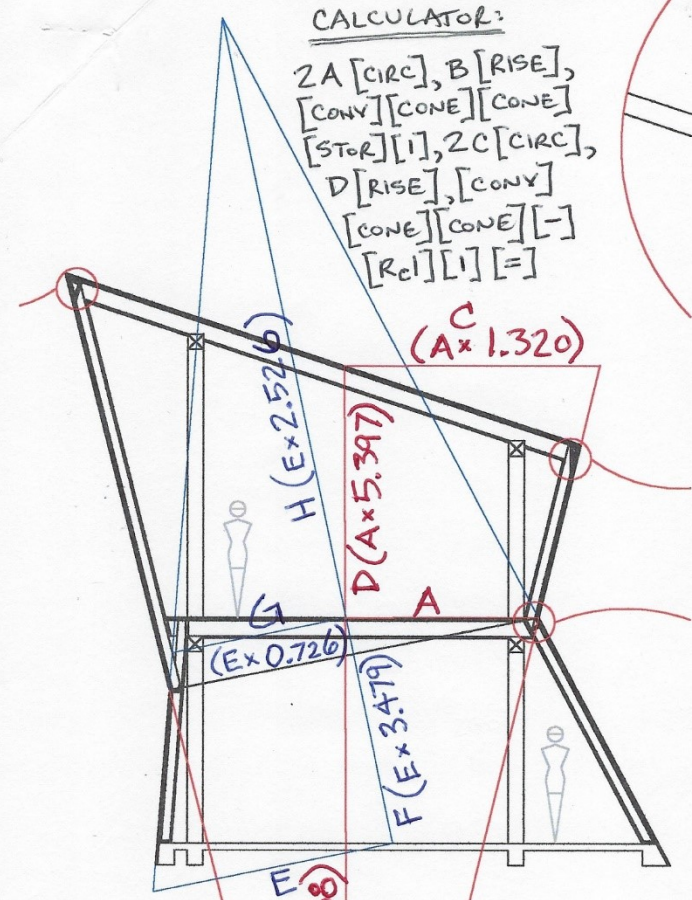 CALCULATOR:
2A [CIRC], B [RISE],
[CONV] [CONE] [CONE]
[STOR] [1], 2C [CIRC],
D [RISE], [CONV]
[CONE] [CONE] [-]
[Rcl] [1] [=]
C
(A x 1.320)
H (E x 2.526)
D (A x 5.397)
G
A
(E x 0.726)
F (E x 3.479)
E
8)